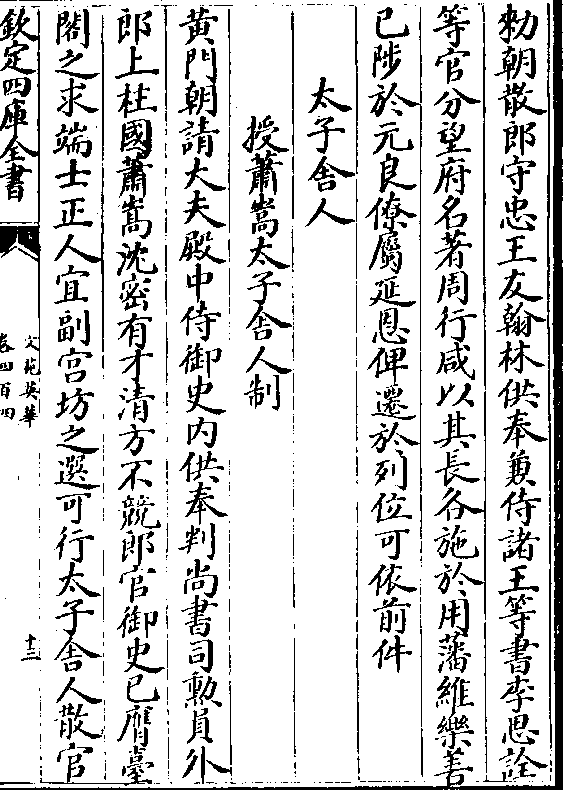 勑朝散郎守忠王友翰林供奉兼侍諸王等書李思詮
等官分望府名著周行咸以其長各施於用藩維樂善
已陟於元良僚屬延恩俾遷於列位可依前件
太子舍人
授蕭嵩太子舍人制
黄門朝請大夫殿中侍御史内供奉判尚書司勲員外
郎上柱國蕭嵩沈密有才清方不競郎官御史已膺臺
閣之求端士正人宜副宫坊之選可行太子舍人散官
欽定四庫全書
文苑英華
卷四百四
十三